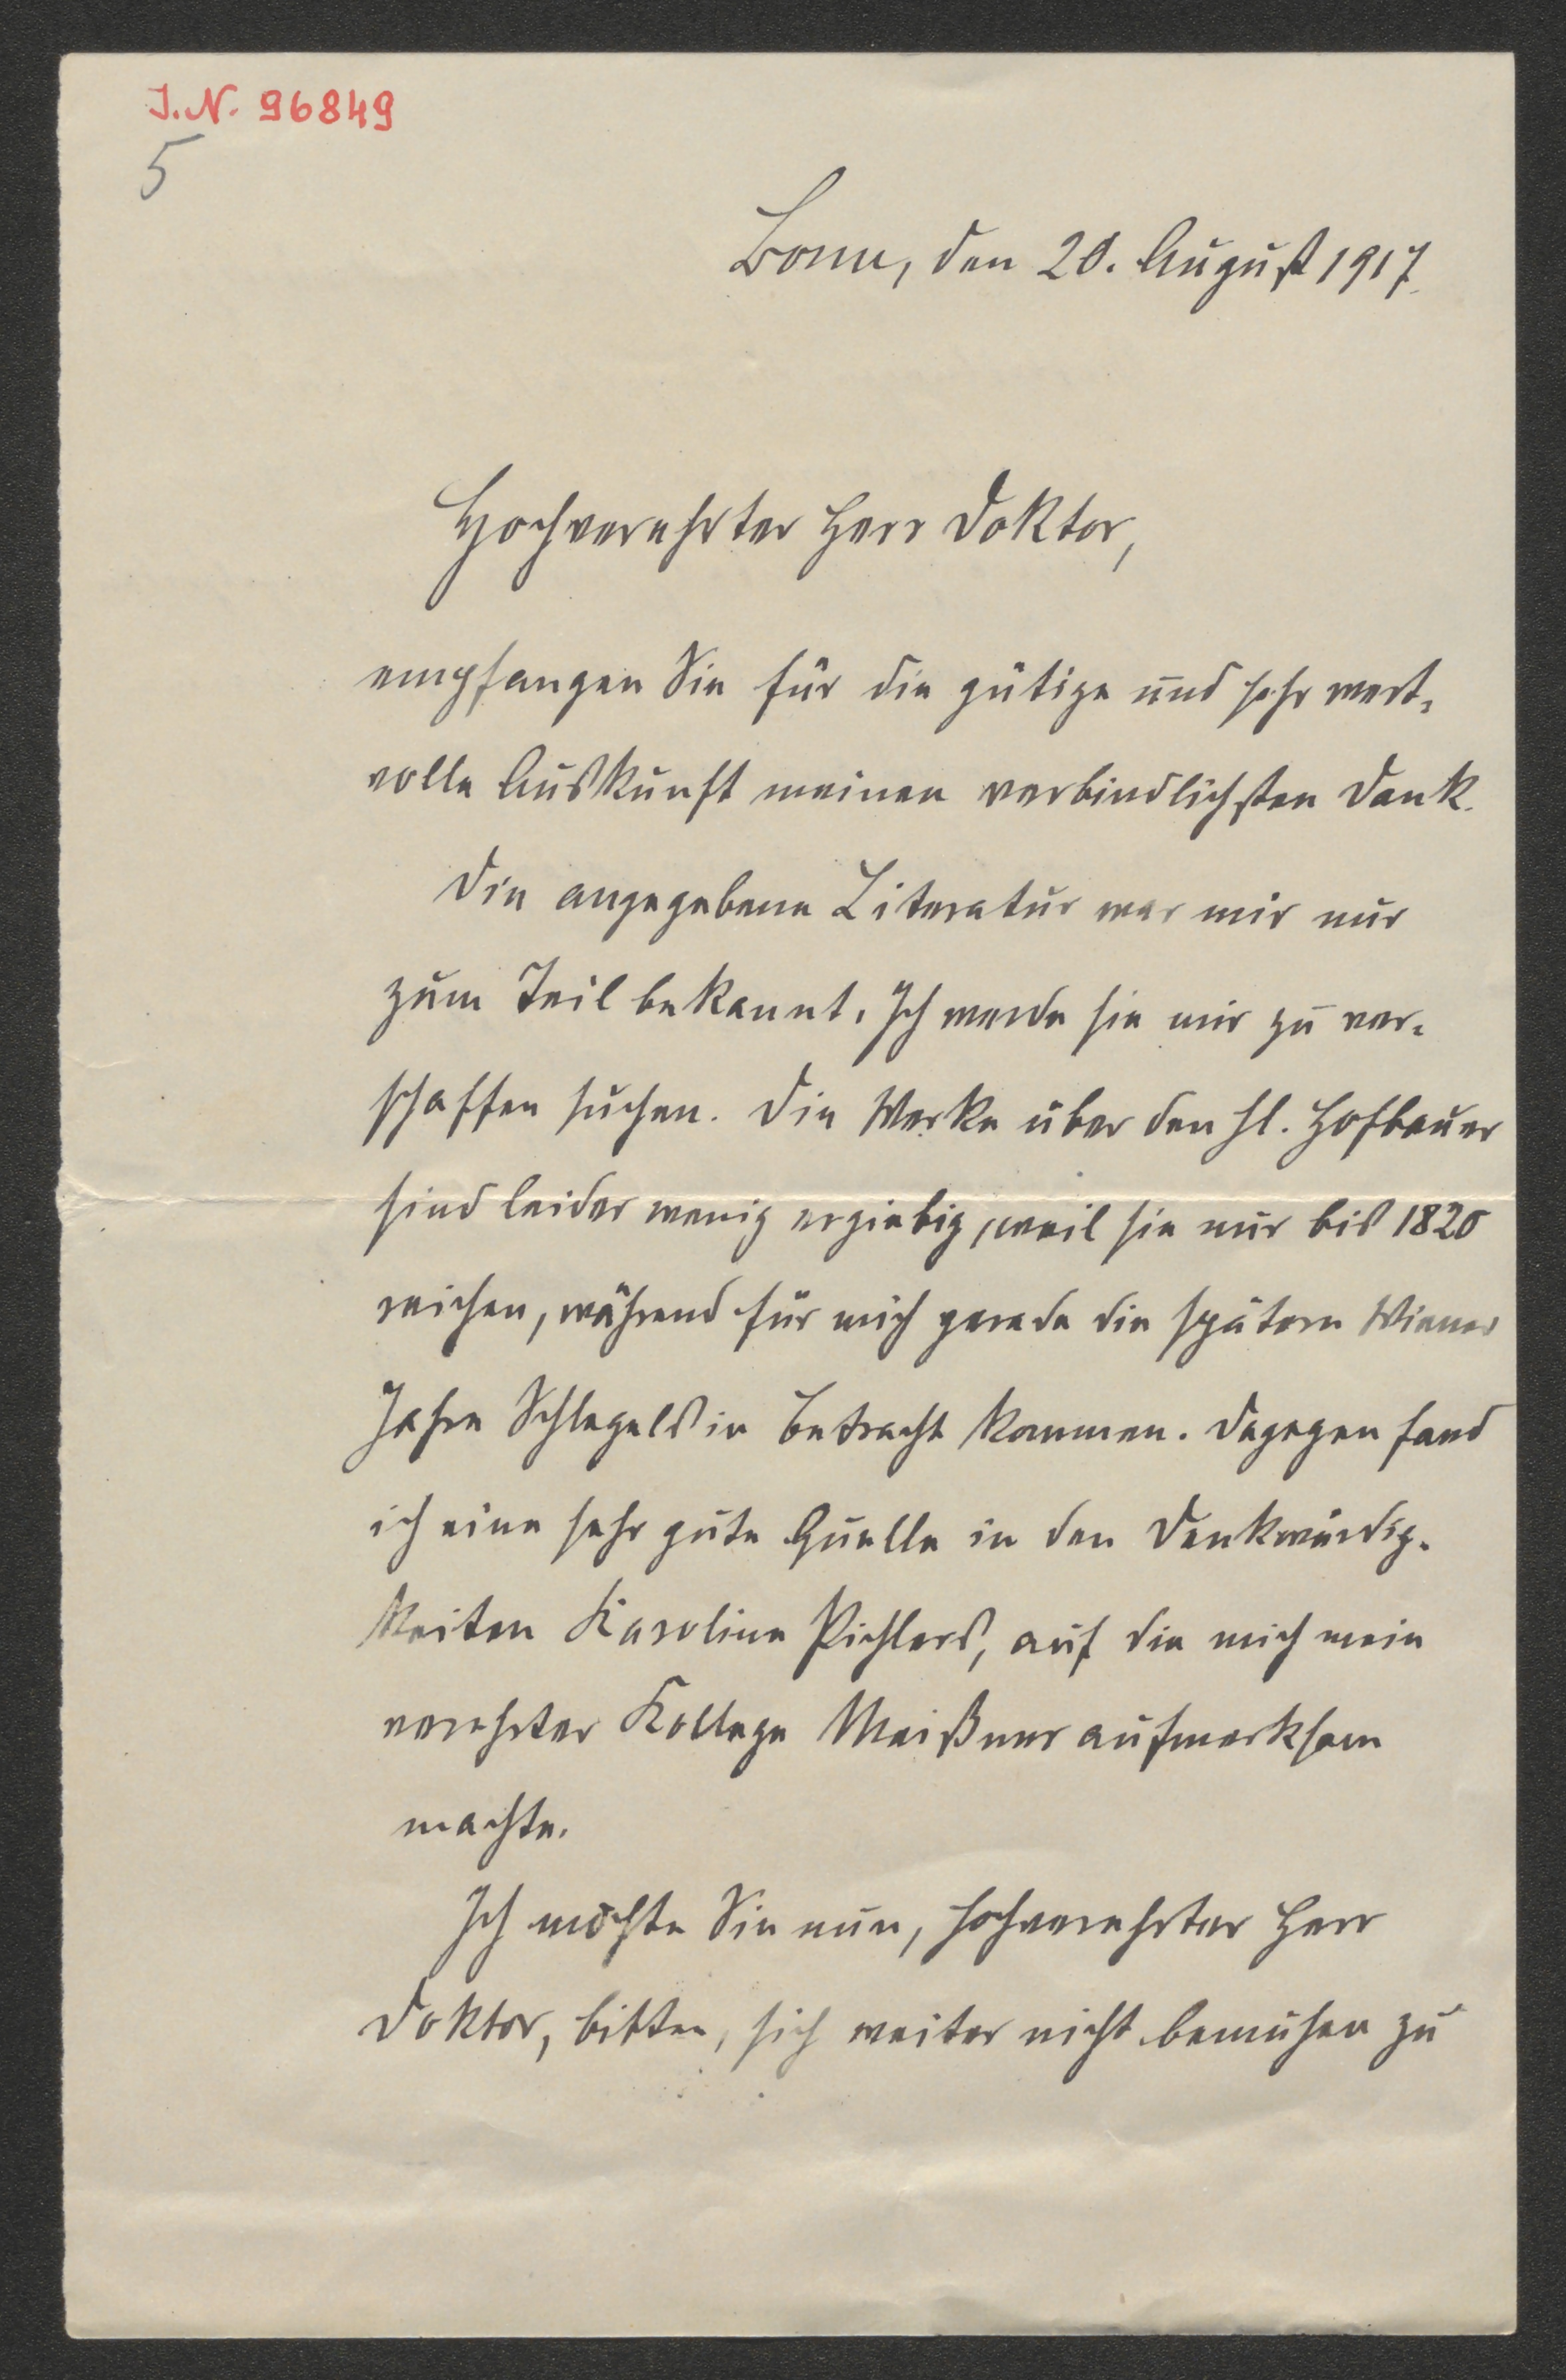 J.N. 96849
5
Bonn, den 20. August 1917.
Hochverehrter Herr Doktor,
empfangen Sie für die gütige und sehr wert-
volle Auskunft meinen verbindlichsten Dank.
Die angegebene Literatur war mir nur
zum Teil bekannt. Ich werde sie mir zu ver-
schaffen suchen. Die Werke über den hl. Hofbauer
sind leider wenig ergiebig, weil sie nur bis 1820
reichen, während für mich gerade die spätern Wiener
Jahre Schlegels in Betracht kommen. Dagegen fand
ich eine sehr gute Quelle in den Denkwürdig-
keiten Karoline Pichlers, auf die mich mein
verehrter Kollege Meißner aufmerksam
machte.
Ich möchte Sie nun, hochverehrter Herr
Doktor, bitten, sich weiter nicht bemühen zu